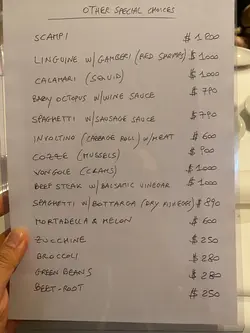 OTHER SPECIAL CHOICES
SCAMPI $1200
LINGUINE W/ GAMBERI (RED SHRIMPS) $1000
CALAMARI (SQUID) $1000
BABY OCTOPUS W/ WINE SAUCE $790
SPAGHETTI W/ SAUSAGE SAUCE $790
INVOLTINO (CABBAGE ROLL) W/ MEAT $600
COZZE (MUSSELS) $900
VONGOLE (CLAMS) $1000
BEEF STEAK W/ BALSAMIC VINEGAR $1000
SPAGHETTI W/ BOTTARGA (DRY FISH EGGS) $890
MORTADELLA & MELON $600
ZUCCHINE $250
BROCCOLI $280
GREEN BEANS $280
BEET-ROOT $250